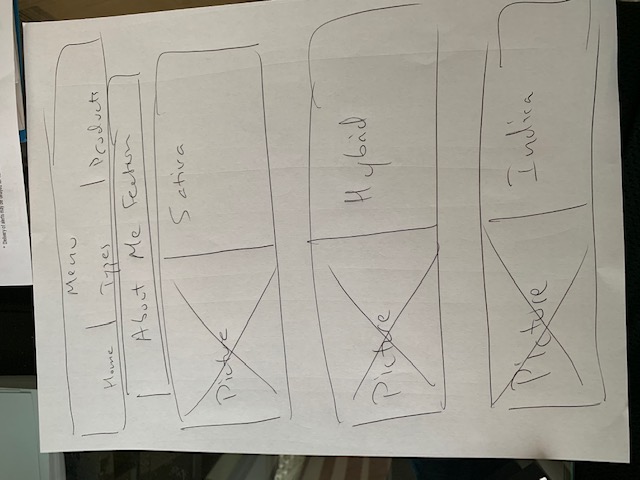 * Delivery of alerts may be delayed
Menu
Home Types Products
About Me Section
Picture Sativa
Picture Hybrid
Picture Indica